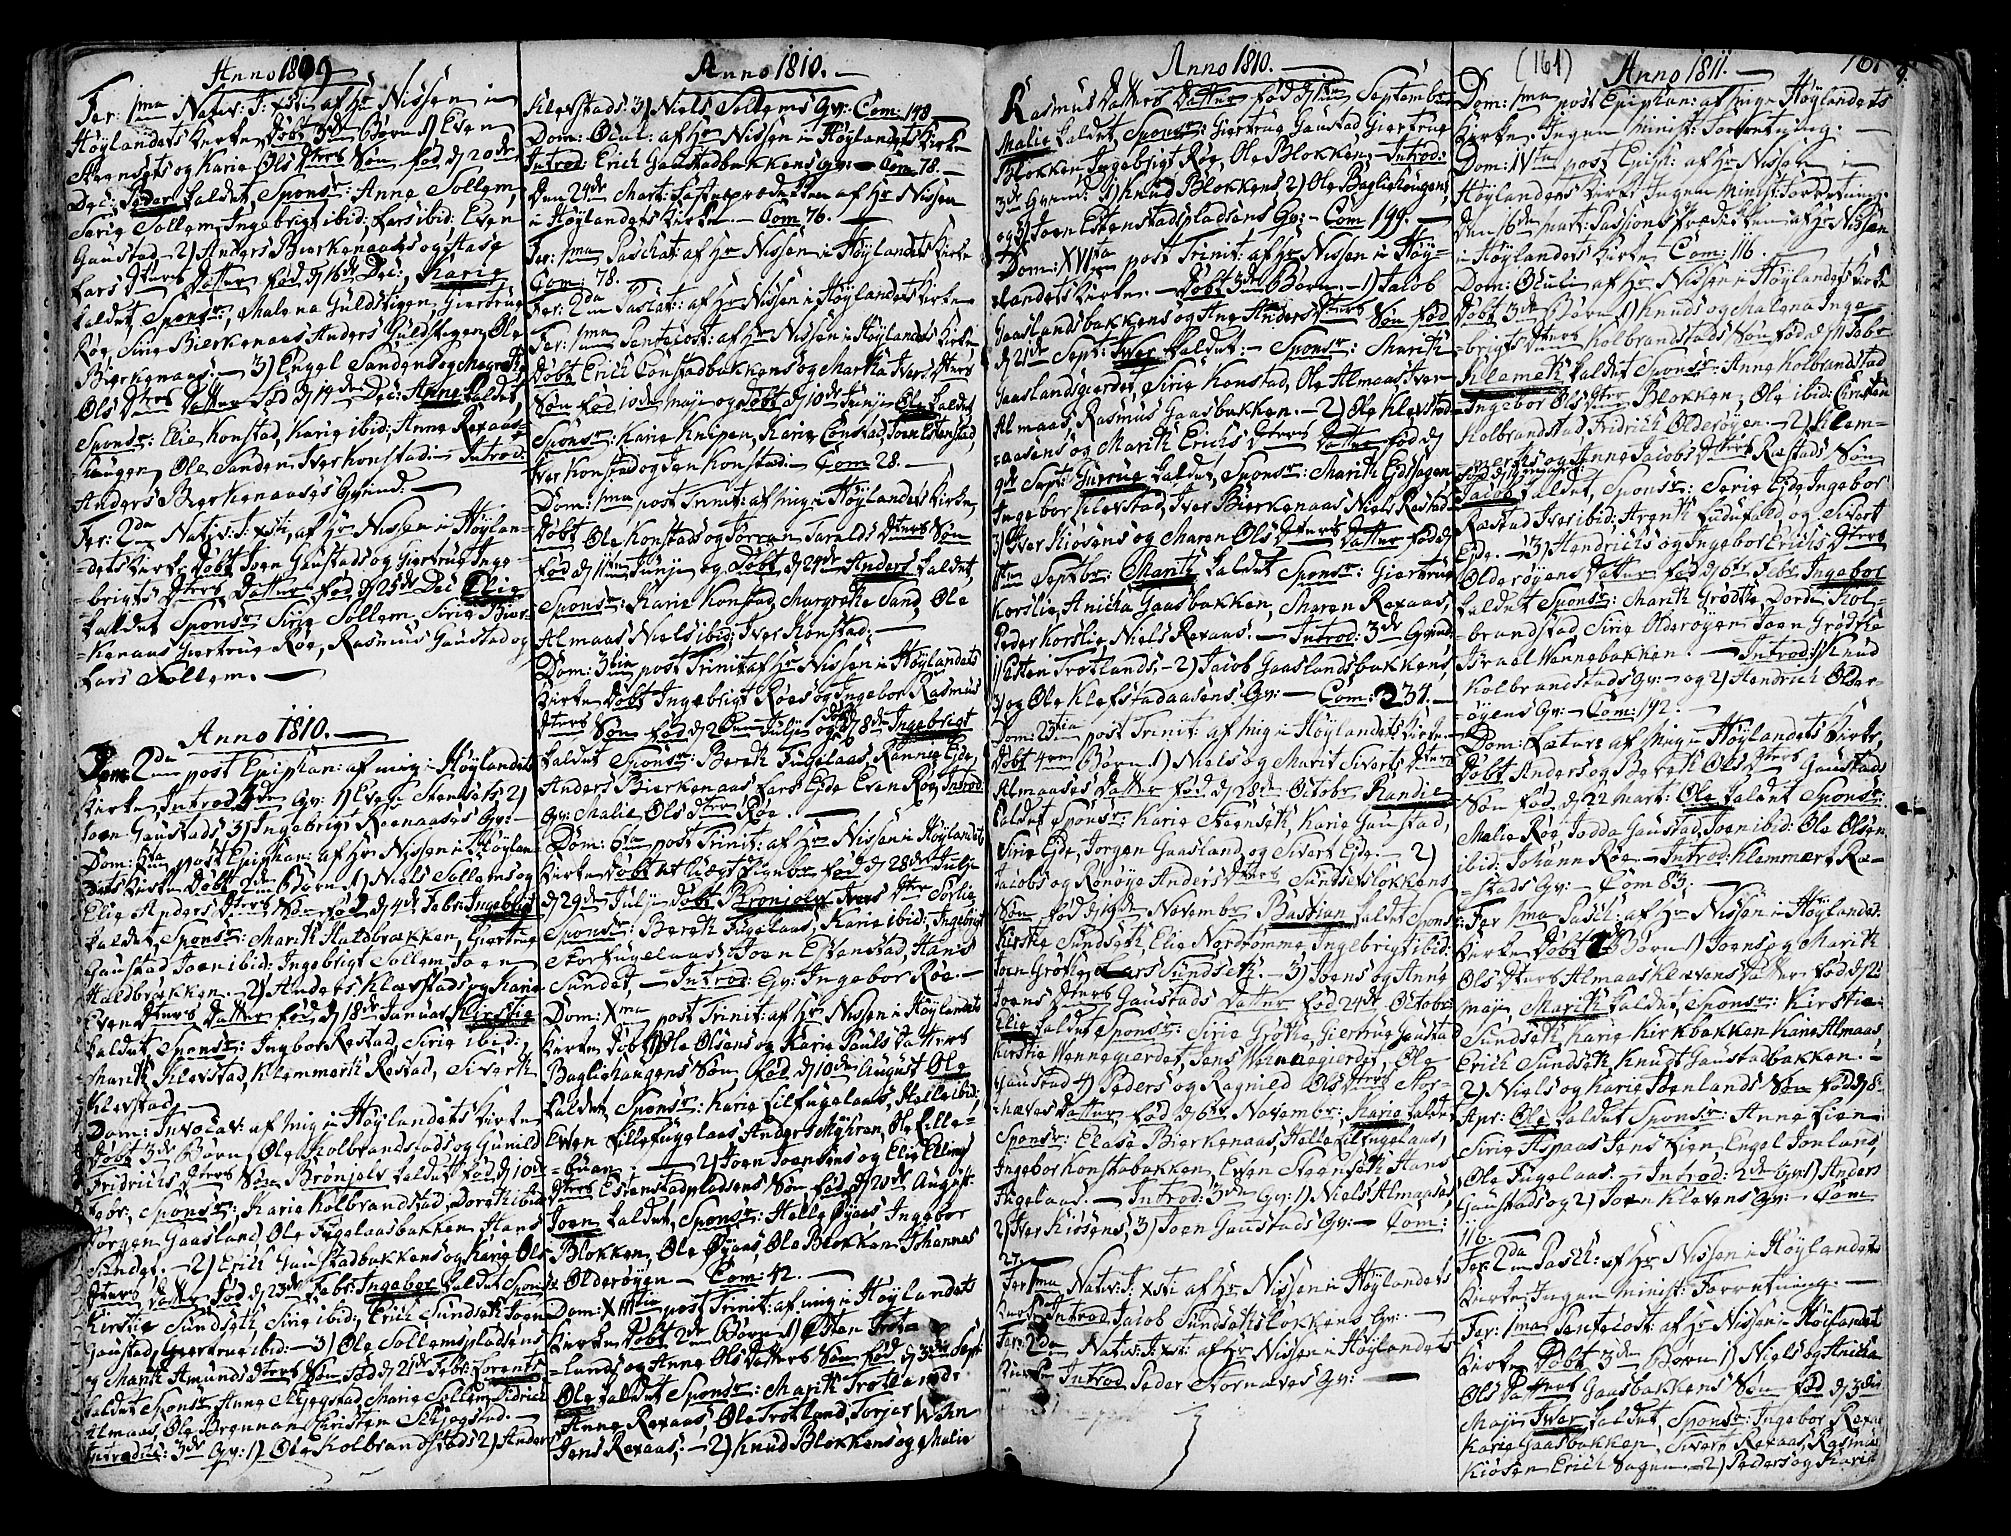 Anno 1809
Fer: 1ma Nativ: J: Xsti af Hr Nissen in
Høylandets Kirke Døbt 3de Børn 1) Even
Steensets og Karie Ols Dtters Søn fød d 20de
Dec: Peder kaldet Spons: Anne Sollem,
Serie Sollem, Ingebrigt ibid: Lars ibid: Even
Gaustad - 2) Anders Bierkenaases og Aase
Lars Dtters Datter fød d 16de Dec: Karie
kaldet Spons: Malena Guldstigen, Giertrue
Røe, Sirie Bierkenaas Anders Guldstigen Ole
Bierkenaas: - 3) Engel Sandens og Magrethe
Ols Dtters Datter fød d 14de Dec: Anne kaldet,
Spons: Elie Konstad, Karie ibid: Anne Rexaas-
haugen, Ole Sanden Iver Konstad: - Introd:
Anders Bierkenaases Qvind. -
Fer: 2da Nativ: J: Xsti, af Hr Nissen i Høylan-
dets Kirke Døbt Joen Gaustads og Giertrug Inge-
brigts Dtters Datter fød d 25de Dec Elie
kaldet Spons: Sirie Sollem, Sirie Bier-
kenaas Giertrue Røe, Rasmus Gaustad og
Lars Sollem. -
Anno 1810. -
Dom: 2da post Epiphan: af mig i Høylandets
Kirke Introd 3de Qv: 1) Even Stensets 2)
Joen Gaustads 3) Ingebrigt Roenaases Qv: -
Dom: 5ta post Epiphan: af Hr Nissen i Høylan-
dets Kirke Døbt 2de Børn 1) Niels Sollems og
Elie Anders Dtters Søn fød d 4de Febr: Ingebrigt
kaldet, Spons: Marith Haldbrekken, Giertrue
Gaustad, Joen ibid: Ingebrigt Sollem, Joen
Haldbrækken. - 2) Anders Klævstads og Karie
Even Dtters Datter fød d 18de Januar Kirstie
kaldet, Spons: Ingbor Røstad, Sirie ibid:
Marith Klevstad, Klemmeth Røstad, Siverth
Klevstad. -
Dom: Invocav: af mig i Høylandets Kirke
Døbt 3de Børn 1) Ole Kolbrandstads og Gunild
Fridrichs Dtters Søn Brønjolv kaldet fød d 10de
Febr: Spons: Karie Kolbrandstad, Doreth ibid:
Jørgen Gaasland, Ole Fugelaasbakken, Hans
Sundet. - 2) Erich Gaustadbakkens og Karie Ols
Dtters Datter fød d 23de Febr: Ingebor kaldet Spons:
Kirstie Sundseth, Sirie ibid: Erich Sundseth Joen
Gaustad, Giertrue ibid: - 3) Ole Sollemspladsens
og Marith Amunds Dtters Søn fød d 21de Febr: Lorents
kaldet Spons: Anne Skjegstad, Marie Sollem Didrich
Almaas, Ole Brennan Christen Skjegstad. -
Introducd: 3de Qv: 1) Ole Kolbrandstads 2) Anders
Anno 1810. -
Klevstads: 3) Niels Sollems Qv: Com: 148. -
Dom: Ocul: af Hr Nissen i Høylandets Kirke
Introd: Erich Gaustadbakkens Qv: - Com: 78. -
Den 24de Mart: Fasteprædiken af Hr Nissen
i Høylandets Kirke. - Com 76. -
Fer: 1ma Paschat: af Hr Nissen i Høylandets Kirke
Com: 78. -
Fer: 2da Paschat: af Hr Nissen i Høylandets Kirke
Fer: 1ma Pentecost: af Hr Nissen i Høylandets Kirke
Døbt Erich Constadbakkens og Martha Ivers Dtters
Søn fød 10de Maji og Døbt d 10de Junji Ole kaldet
Spons: Karie Knipen, Karie Constad, Joen Estenstad,
Iver Konstad og Jen Konstad: - Com 28. -
Dom: 1ma post Trinit: af mig i Høylandets Kirke
Døbt Ole Konstads og Torran Taralds Dtters Søn
fød d 11te Junji og Døbt d 24de Anders kaldet,
Spons: Karie Konstad, Margrethe Sand, Ole
Almaas Niels ibid: Iver Konstad. -
Dom: 3tia post Trinit af Hr Nissen i Høylandets
Kirke Døbt Ingebrigt Røes og Ingebor Rasmus
Dtters Søn fød d 2den Julji og Døbt d 8de Ingebrigt
kaldet Spons: Bereth Fugelaas, Rannie Eide,
Anders Bierkenaas Lars Eide Even Røe, Introd:
Qv: Malie Ols dtter Røe. -
Dom: 6ta post Trinit: af Hr Nissen i Høylandets
Kirke Døbt et Uægt Pigebar fød d 28de Julji
d 29de Julji Døbt Brønjolv Ivers Dtr Sørlie
Spons: Bereth Fugelaas, Karie ibid: Ingebrigt
Storfugelaas Joen Estenstad, Hans
Sundet, - Introd: Eg: Ingebor Røe. -
Dom: Xma post Trinit: af Hr Nissen i Høylandets
Kirke Døbt Ole Olsens og Karie Pouls Datters
Bagliehaugens Søn fød d 10de August Ole
kaldet, Spons: Karie Lilfugelaas, Helle ibid:
Even Lillefugelaas Anders Mehren, Ole Lille-
buan: - 2) Joen Joensens og Elie Ellings
Dtters Estenstadpladsens Søn fød d 20de August
Joen kaldet, Spons: Helle Øyaas Ingebor
Blokken, Ole Øyaas, Ole Blokken Johannes
Olderøyen - Com: 42. -
Dom: XIIItia post Trinit: af mig i Høylandets
Kirke Døbt 2de Børn 1) Østen Trøta
lands og Anne Ols Datters Søn fød d 3de Sept:
Ole kaldet Spons: Marith Trøtland:
Anne Rexaas, Ole Trøtland, Torjer Wahn
Jens Rexaas, - 2) Knud Blokkens og Malie
Anno 1810. -
Rasmus Datters Datter fød d 1te September
Malie kaldet, Spons: Giertrue Gaustad Giertrue
Blokken, Ingebrigt Røe, Ole Blokken, - Introd:
3de Qvind: 1) Knud Blokkens 2) Ole Bagliehaugens,
og 3) Joen Estenstadpladsens Qv: - Com 199. -
Dom: XVIta post Trinit: af Hr Nissen i Høy-
landets Kirke. - Døbt 3de Børn. - 1) Jacob
Gaaslandsbakkens og Ane Anders Dtters Søn fød
d 21de Sept: Iver kaldet: - Spons: Marith
Gaaslandsgierdet, Sirie Konstad, Ole Almaas Iver
Almaas, Rasmus Gaasbakken. - 2) Ole Klevstad-
aasens og Marith Erichs Dtters Datter fød d
9de Sept: Gurrue kaldet, Spons: Marith Eidshagen
Ingebor Klevstad, Iver Bierkenaas Niels Røstad.
3) Iver Kiøsens og Maren Ols Dtters Datter fød d
1te Septbr: Marith kaldet Spons: Giertrue
Korslie, Anicha Gaasbakken, Maren Rexaas,
Peder Korslie, Niels Rexaas. - Introd: 3de Qvind:
1) Østen Trøtlands. - 2) Jacob Gaaslandsbakkens,
3) og Ole Klefstadaasens Qv: - Com: 234. -
Dom: 23tia post Trinit: af mig i Høylandets Kirke.
Døbt 4re Børn 1) Niels og Marit Siverts Dtters
Almaases Datter fød d 28de Octobr Randie
kaldet Spons: Karie Steenseth, Karie Gaustad,
Sirie Eide, Jørgen Gaasland, og Sivert Eide. - 2)
Jacobs og Ronøye Anders Dtters Sundsetsløkkens
Søn fød d 19de November Bastian kaldet Spons:
Kirstie Sundseth, Elie Nordtømme, Ingebrigt ibid:
Joen Grøthe, Lars Sundseth. - 3) Joens og Anne
Joens Dtters Gaustads Datter fød 24de Octobr:
Elie kaldet Spons: Sirie Grøthe, Giertrue Gausta
Kirstie Wennegierdet, Jens Wennegierdet, Ole
Gaustad 4) Peders og Ragnild Ols Dtters Stor-
næves Datter fød d 6te Novembr: Marie kaldet
Spons: Elase Bierkenaas, Helle Lilfugelaas,
Ingebor Konstabakken, Even Steenseth Hans
Fugelaas. - Introd: 3de Qv: 1) Niels Almaases
2) Iver Kiøsens, 3) Joen Gaustads Qv: - Com:
27. -
Fer: 1ma Nativ: J: Xsti af Hr Nissen i Høylandets
Kirke Introd. Jacob Sundsethsløkkens Qv: -
Fer: 2da Nativ: J: Xsti: af Hr Nissen i Høylandets
Kirke Introd. Peder Stornæves Qv: -
(161) Anno 1811. - 161
Dom: 1ma post Epiphan: af mig i Høylandets
Kirke. Ingen Minist: Forretning. -
Dom: IVta post Epiph: af Hr Nissen in
Høylandets Kirke Ingen Minist: Forretning.
Den 16de Mart: Passions Prædiken af Hr Nissen
i Høylandets Kirke Com: 116. -
Dom: Oculi af Hr Nissen i Høylandets Kirke
Døbt 3de Børn 1) Knuds og Malena Inge-
brigts Dtters Kolbrandstads Søn fød d 11 Febr
Klemet kaldet Spons: Anne Kolbrandstad
Ingebor Ols Dtter Blokken, Ole ibid: Christen
Kolbrandstad, Fridrich Olderøyen. - 2) Klem-
merts og Anne Jacobs Dtters Røstads Søn
fød d
Jacob kaldet, Spons: Serie Eide Ingebor
Røstad Iver ibid: Arenth Ludufald og Sivert
Eide. - 3) Hendrichs og Ingebor Erichs Dtters
Olderøyens Datter fød d 6te Febr Ingebor
kaldet Spons: Marith Grøthe, Dorth Kol-
brandstad Sirie Olderøyen Joen Grøthe
Israal Wannebakken. - Introd: 1) Knud
Kolbrandstads Qv: - og 2) Hendrich Older-
øyens Qv: - Com: 192. -
Dom: Lætare af mig i Høylandets Kirke,
Døbt Anders og Bereth Ols Dtters Gaustads
Søn fød d 22 Mart: Ole kaldet Spons:
Malie Røe, Jodda Gaustad, Joen ibid: Ole Olsen,
ibid: Johann Røe. - Introd: Klemmert Rø-
stads Qv: - Com 83. -
Fer 1ma Pasch: af Hr Nissen i Høylandets
Kirke Døbt 2de Børn 1) Joens og Marith
Ols Dtters Almaasklevens Datter fød d 2
Maji, Marith kaldet, Spons: Kirstie
Sundseth, Karie Kirkbakken Karie Almaas
Erich Sundseth, Knudt Gaustadbakken. -
2) Niels og Karie Roenlands Søn fød d 8
Apr: Ole kaldet Spons: Anne Lien:
Sirie Aspaas Jens Lien, Engel Jonland,
Ole Fugelaas. - Introd: 2de Qv: 1) Anders
Gaustads og 2) Joen Klevens Qv: - Com
116. -
Fer: 2da Pasch: af Hr Nissen i Høylandets
Kirke, Ingen Minist: Forretning. -
Fer: 1ma Pentecost: af Hr Nissen i Høylandet
Kirke Døbt 3de Børn 1) Niels og Anicha
Ols Datters Gaasbakkens Søn fød d 3die
Maji Iver kaldet, Spons: Ingebor Rexaas
Karie Gaasbakken, Sivert Rexaas, Rasmus
Kiøsen Erich Sagen. - 2) Peders og Karie